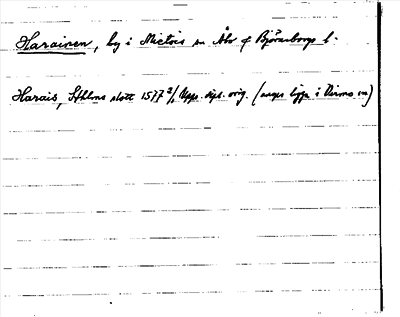 Harainen, by i Mietois sn Åbo o Björneborgs l.
Harais, Sthlms slott 1577 2/1 Upps. dipl. orig. (anges ligga i Virmo sn)